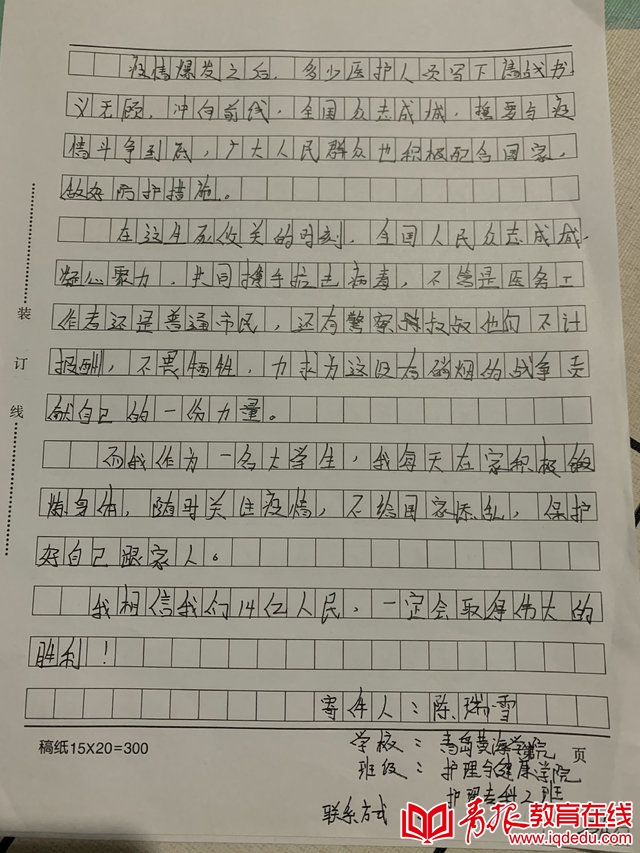 疫情爆发之后，多少医护人员写下请战书
义无顾，冲向前线，全国众志成城，誓要与疫
情斗争到底，广大人民群众也积极配合国家，
做好防护措施。
在这生死攸关的时刻，全国人民众志成城，
凝心聚力，共同携手抗击病毒，不管是医务工
作者还是普通市民，还有警察叔叔他们不计
报酬，不畏牺牲，力求为这没有硝烟的战争贡
献自己的一份力量。
而我作为一名大学生，我每天在家积极锻
炼身体，随时关注疫情，不给国家添乱，保护
好自己跟家人。
我相信我们14亿人民，一定会取得伟大的
胜利！
寄件人：陈瑞雪
稿纸15X20=300
第 页
学校：青岛黄海学院
班级：护理与健康学院
护理专科2班
联系方式
装
订
线
青报教育在线
www.iqdedu.com